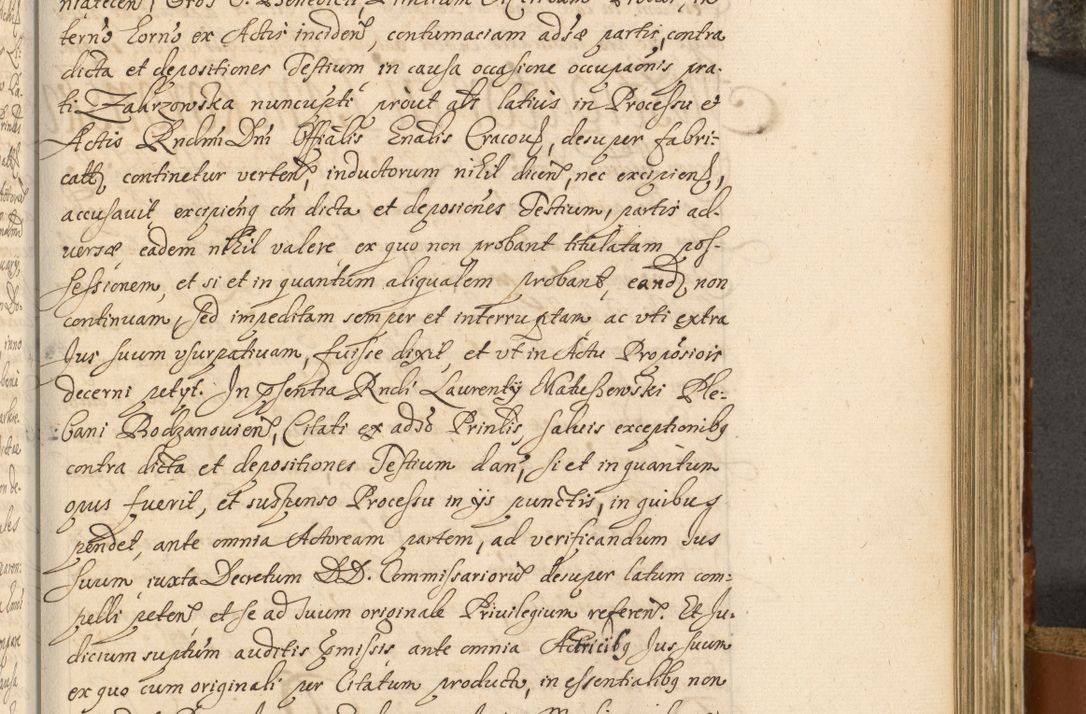 terno Corno ex Actis inciden, contumaciam adsæ partis, contra
dicta et depositiones Testium in causa occasione occupaonis pra-
ti Zabrzowska nuncupti prout als latius in Processu et
Actis Rndmi Dni Offialis Gnalis Cracou, desuper fabri-
cat continetur verten, inductorum nihil dicen, nec excipien,
accusavit excipienq con dicta et deposiones Testium, partis ad-
versæ eadem nihil valere ex quo non probant titulatam pos-
sessionem, et si et in quantum aliqualem probant, eand non
continuam, sed impeditam semper et interruptam ac vti extra
Jus suum vsurpativam, fuisse dixit, et vt in Actu Propósiois
decerni petyt. In psentia Rndi Laurentij Mateszewski Ple-
bani Bodzanouien, Citati ex adso Prinlis, salvis exceptionibq
contra dicta et depositiones Testium dan, si et in quantum
opus fuerit, et suspenso Processu in ijs punctis, in quibus
pendet, ante omnia Actoream partem, ad verificandum Jus
suum iuxta Decretum DD. Commissarioru desuper latum com-
pelli peten et se ad suum originale Privilegium referen. Et Ju-
dicium suptum auditis pmissis ante omnia Actricibq Jus suum
ex quo cum originali per Citatum producto, in essentialibq non